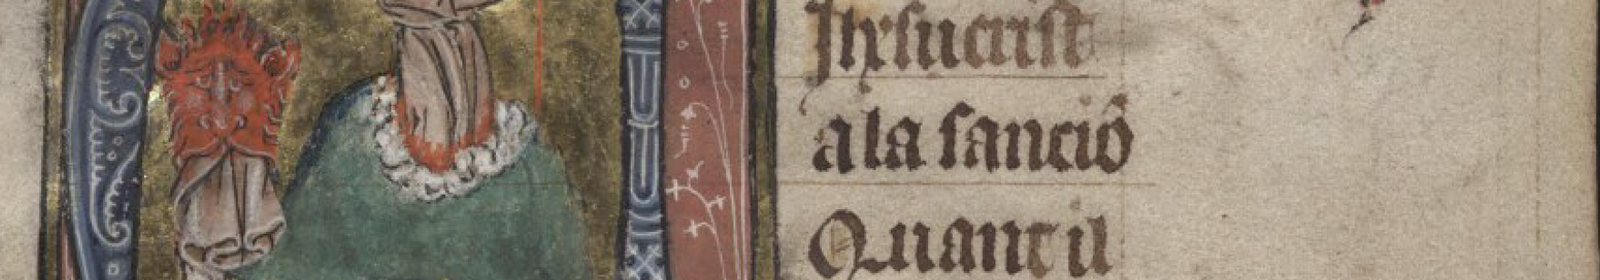 Ihesucrist
a la sanciō
Quant il